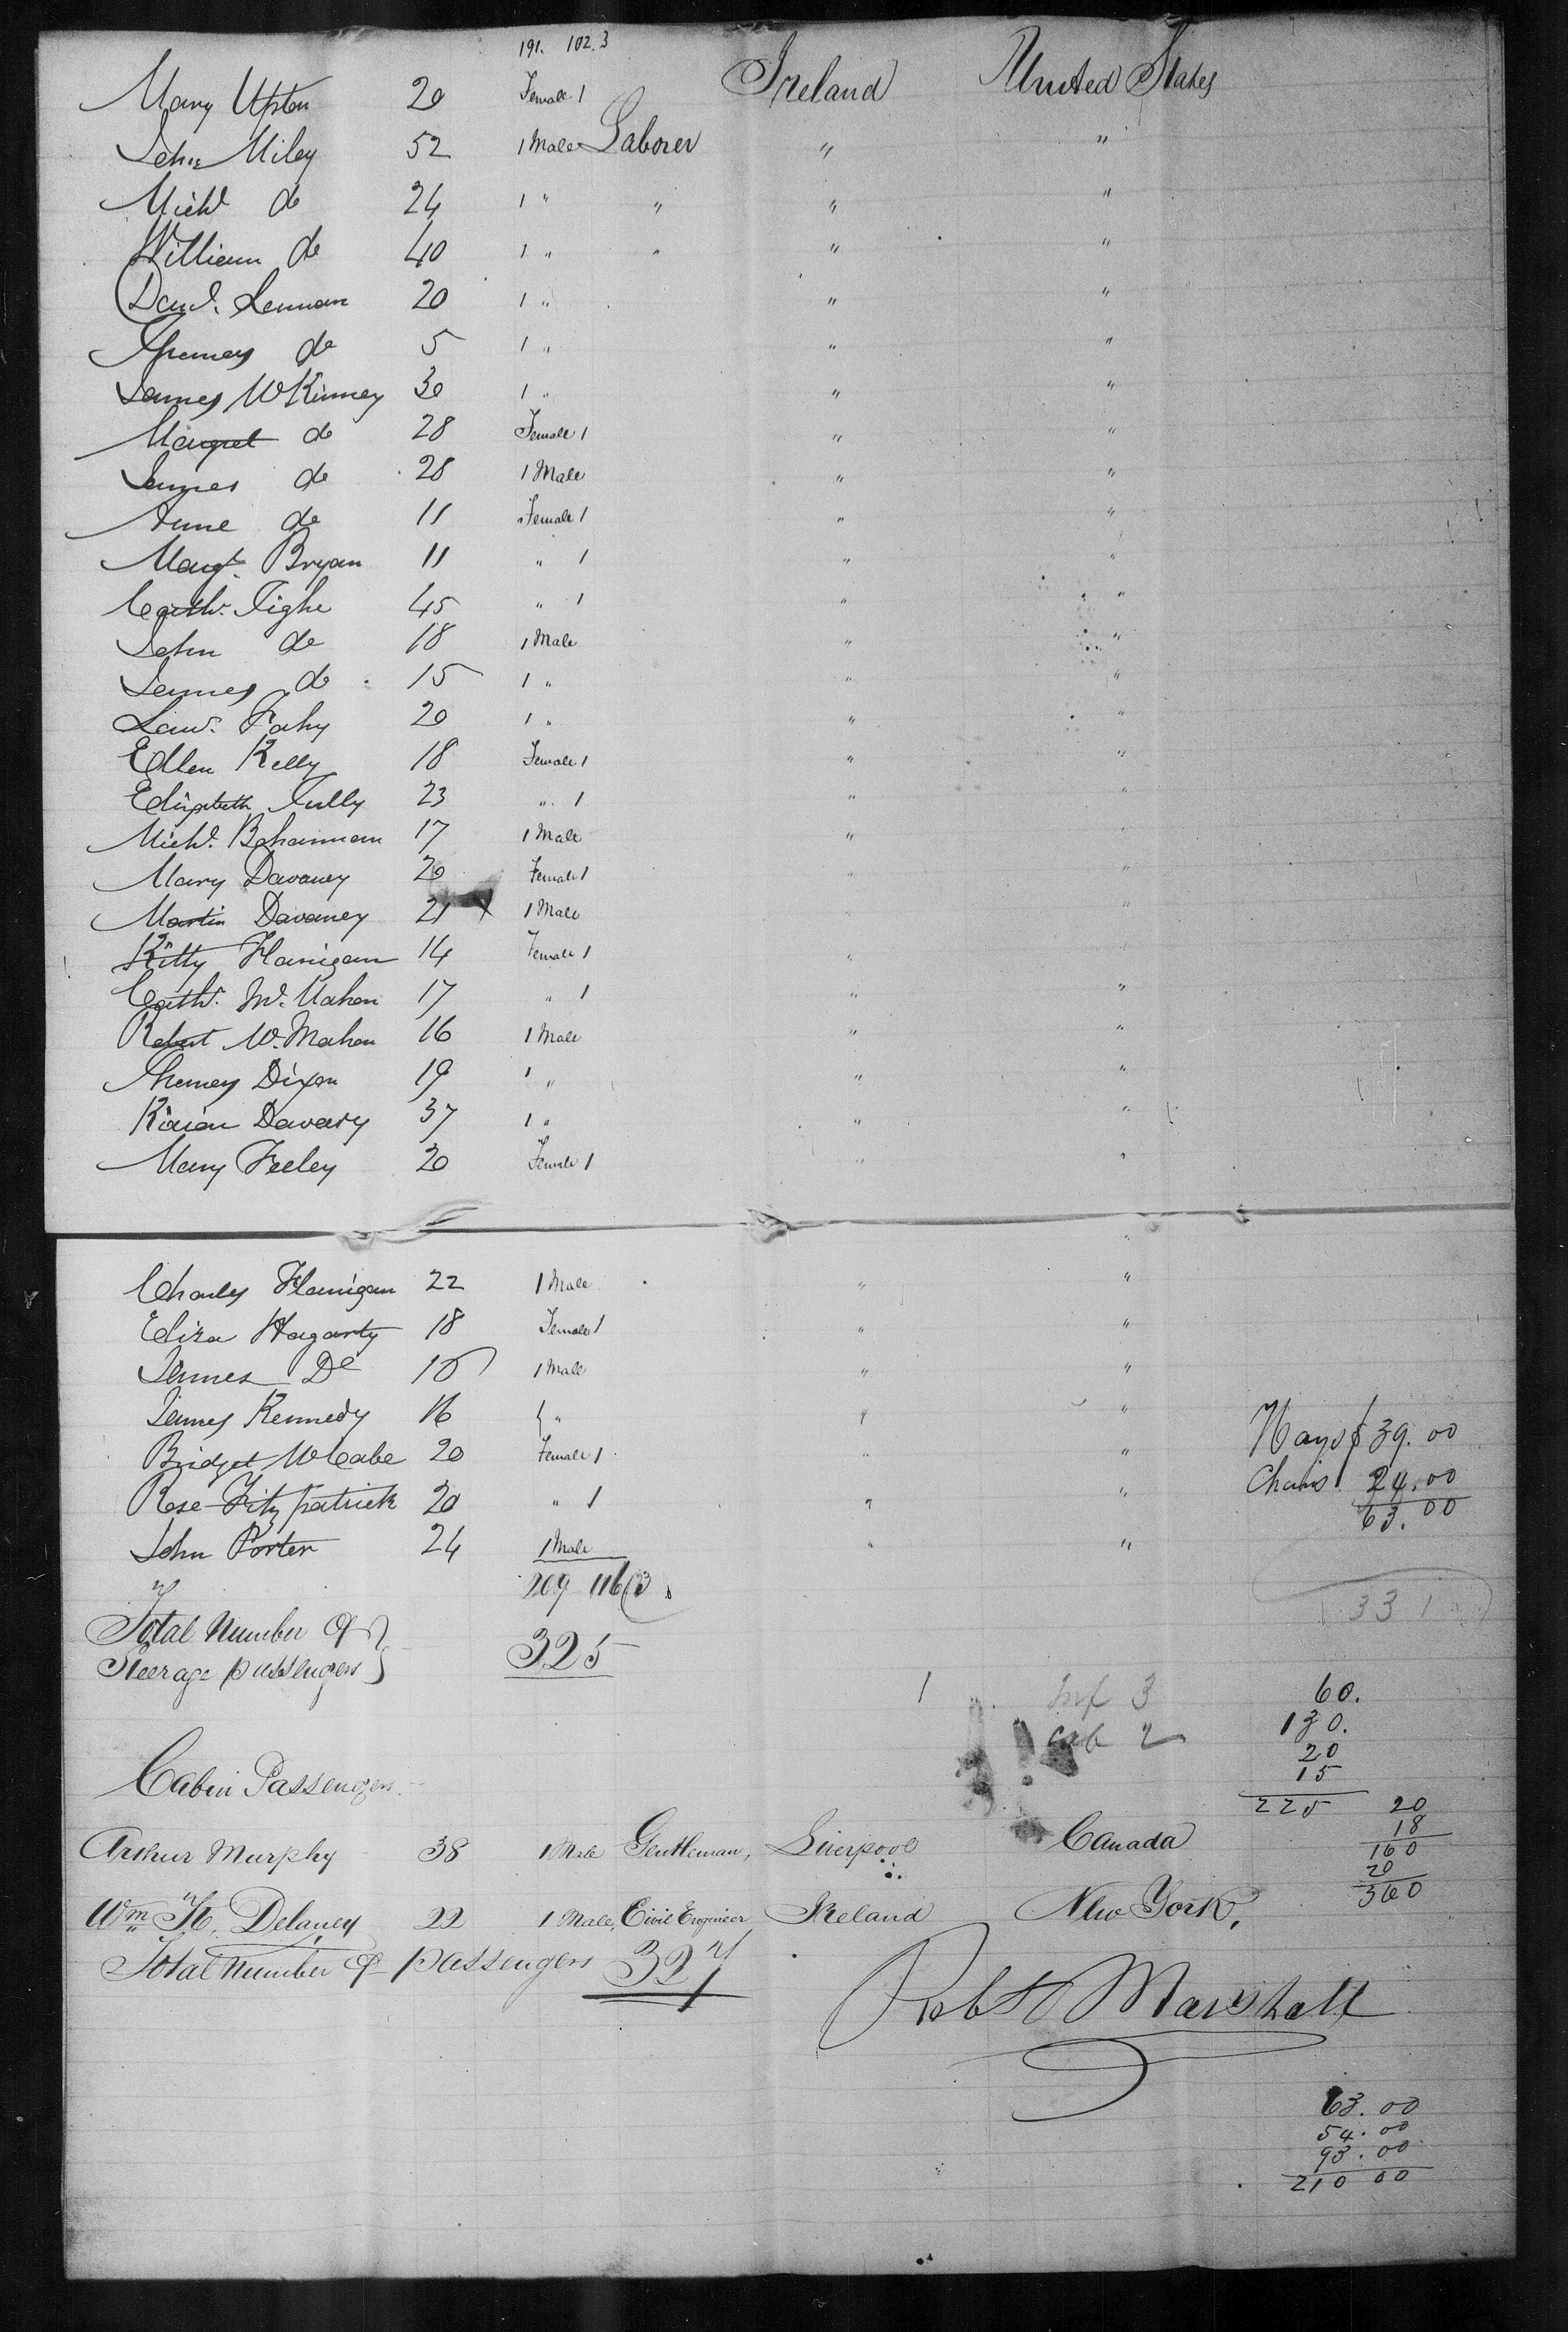 191. 102. 3
Mary Upton 20 Female 1 Ireland United States
John Miley 52 1 Male Laborer " "
Michl do 24 1 " " " "
William do 40 1 " " " "
Danl. Lennan 20 1 " " "
Thomas do 5 1 " " "
James McKinney 30 1 " " "
Margret do 28 Female 1 " "
James do 28 1 Male " "
Anne do 11 Female 1 " "
Margt. Bryan 11 " 1 " "
Cathr. Tighe 45 " 1 " "
John do 18 1 Male " "
James do 15 1 " " "
Lawr. Fahy 20 1 " " "
Ellen Kelly 18 Female 1 " "
Elizabeth Tully 23 " 1 " "
Michl. Bohannan 17 1 Male " "
Mary Davaney 20 Female 1 " "
Martin Davaney 21 X 1 Male " "
Kitty Flanigan 14 Female 1 " "
Cathr. Mc. Mahon 17 " 1 " "
Robert Mc. Mahon 16 1 Male " "
Thomas Dixon 19 1 " " "
Kiran Davany 37 1 " " "
Mary Feeley 20 Female 1 " "
Charles Flanigan 22 1 Male " "
Eliza Hagarty 18 Female 1 " "
James Do 16 1 Male " "
James Kennedy 16 1 " " "
Bridget McCabe 20 Female 1 " "
Rose Fitzpatrick 20 " 1 " "
John Porter 24 1 Male " "
$ 39.00
24.00
63.00
209 116 (3
331
Total Number of }
Steerage passengers } 325
1 Inf 3
Cab 2
60.
130.
20
15
225
Cabin Passengers.
20
18
160
20
360
Arthur Murphy 38 1 Male Gentleman, Liverpool Canada
Wm H. Delaney 22 1 Male, Civil Engineer Ireland New York,
Total Number of passengers 327
Robt Marshall
63.00
54.00
93.00
210 00